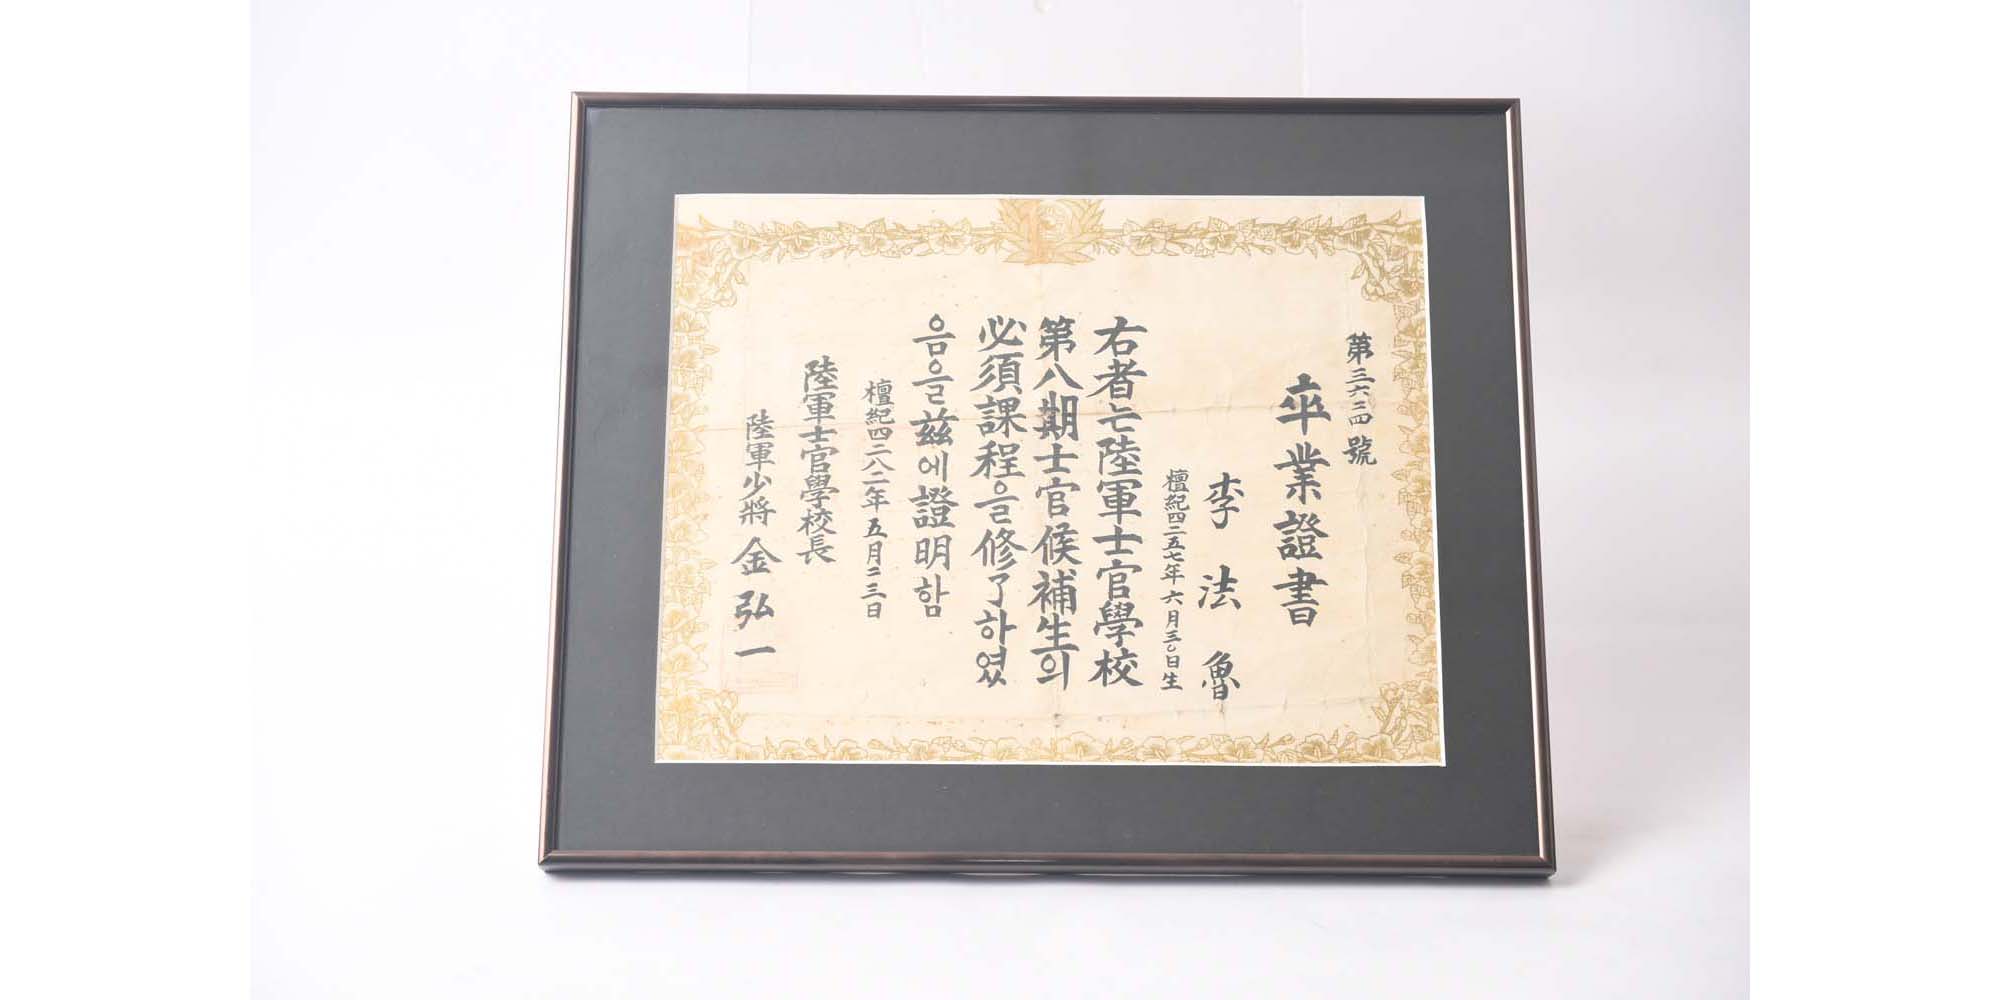 第三六三四號
卒業證書
李法魯
檀紀四二五七年六月三〇日生
右者는陸軍士官學校
第八期士官候補生의
必須課程을修了하였
음을玆에證明함
檀紀四二八二年五月二三日
陸軍士官學校長
陸軍少將 金弘一